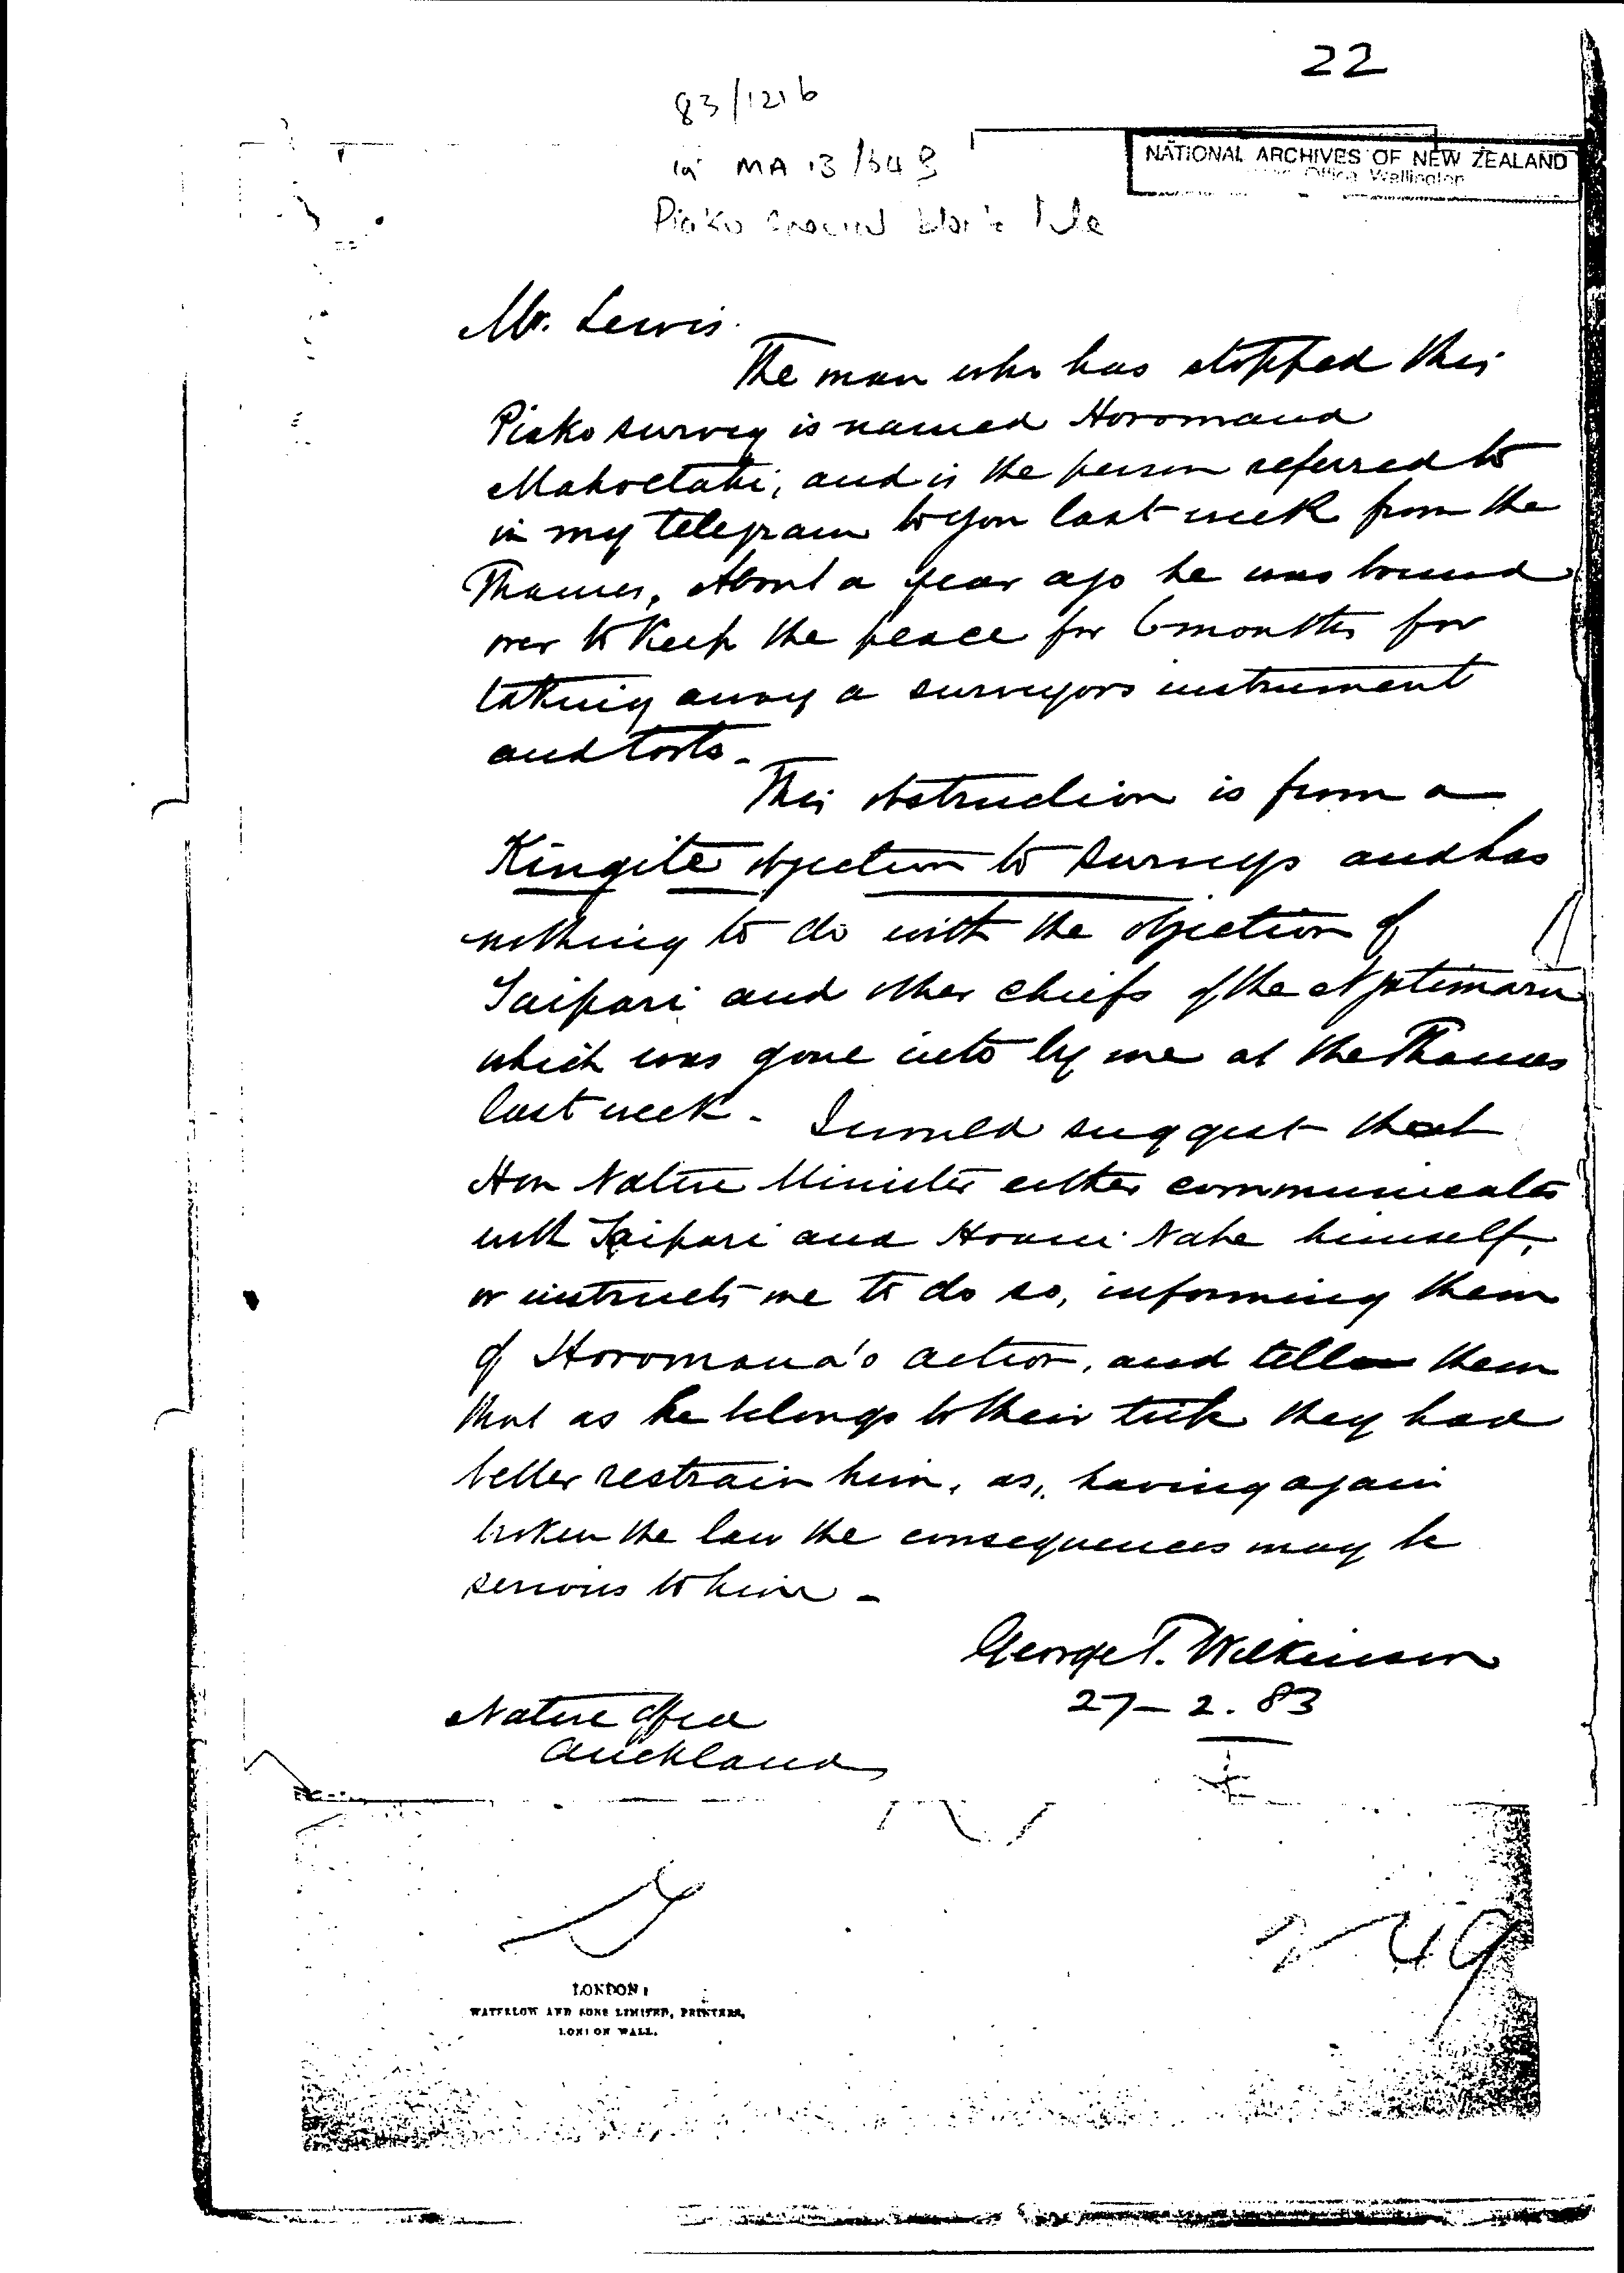 22
83/1216
in MA 13/64B
NATIONAL ARCHIVES OF NEW ZEALAND
Office Wellington
Piako
Mr. Lewis.
The man who has stopped this
Piako survey is named Horomana
Mahoetahi, and is the person referred to
in my telegram to you last week from the
Thames. About a year ago he was bound
over to keep the peace for 6 months for
taking away a surveyors instrument
and tools.
This obstruction is from a
Kingite objection to surveys and has
nothing to do with the objection of
Taipari and other chiefs of the Ngatimaru
which was gone into by me at the Thames
last week. I would suggest that
Hon Native Minister either communicates
with Taipari and Hoani Nahe himself,
or instructs me to do so, informing them
of Horomana's action, and tell them
that as he belongs to their tribe they had
better restrain him, as, having again
broken the law the consequences may be
serious to him -
George T. Wilkinson
27-2.83
Native Office
Auckland
LONDON:
WATERLOW AND SONS LIMITED, PRINTERS,
LONDON WALL.